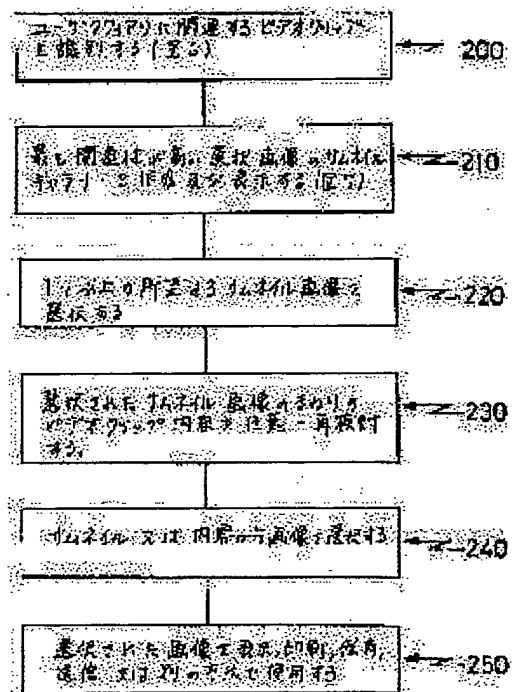 ユーザクエリに関連するビデオクリップ
を識別する(図3)
200
最も関連性が高い選択画像のサムネイル
ギャラリーを作成及び表示する(図5)
210
1つ以上の所望するサムネイル画像を
選択する
220
選択されたサムネイル画像のまわりの
ビデオクリップ内容を
する。
230
サムネイル又は内容から画像を選択する
240
選択された画像を表示、印刷、保存、
送信、又は別の方法で使用する
250